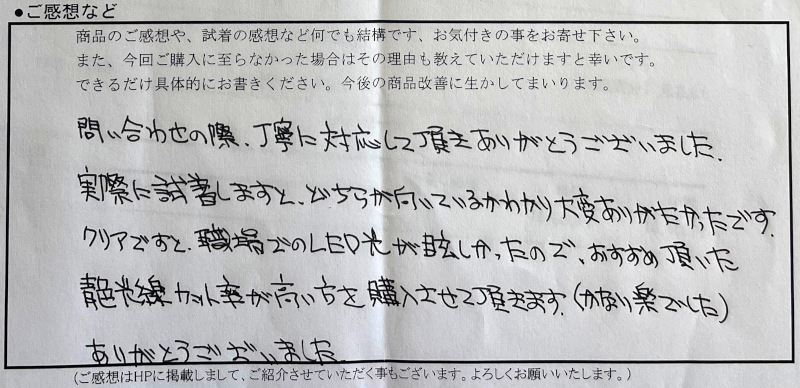 ●ご感想など
商品のご感想や、試着の感想など何でも結構です、お気付きの事をお寄せ下さい。
また、今回ご購入に至らなかった場合はその理由も教えていただけますと幸いです。
できるだけ具体的にお書きください。今後の商品改善に生かしてまいります。
問い合わせの際、丁寧に対応して頂きありがとうございました。
実際に試着しますと、どちらが向いているかわかり大変ありがたかったです。
クリアですと、職場でのLED光が眩しかったので、おすすめ頂いた
青色光線カット率が高い方を購入させて頂きます。(かなり楽でした)
ありがとうございました
(ご感想はHPに掲載しまして、ご紹介させていただく事もございます。よろしくお願いいたします。)